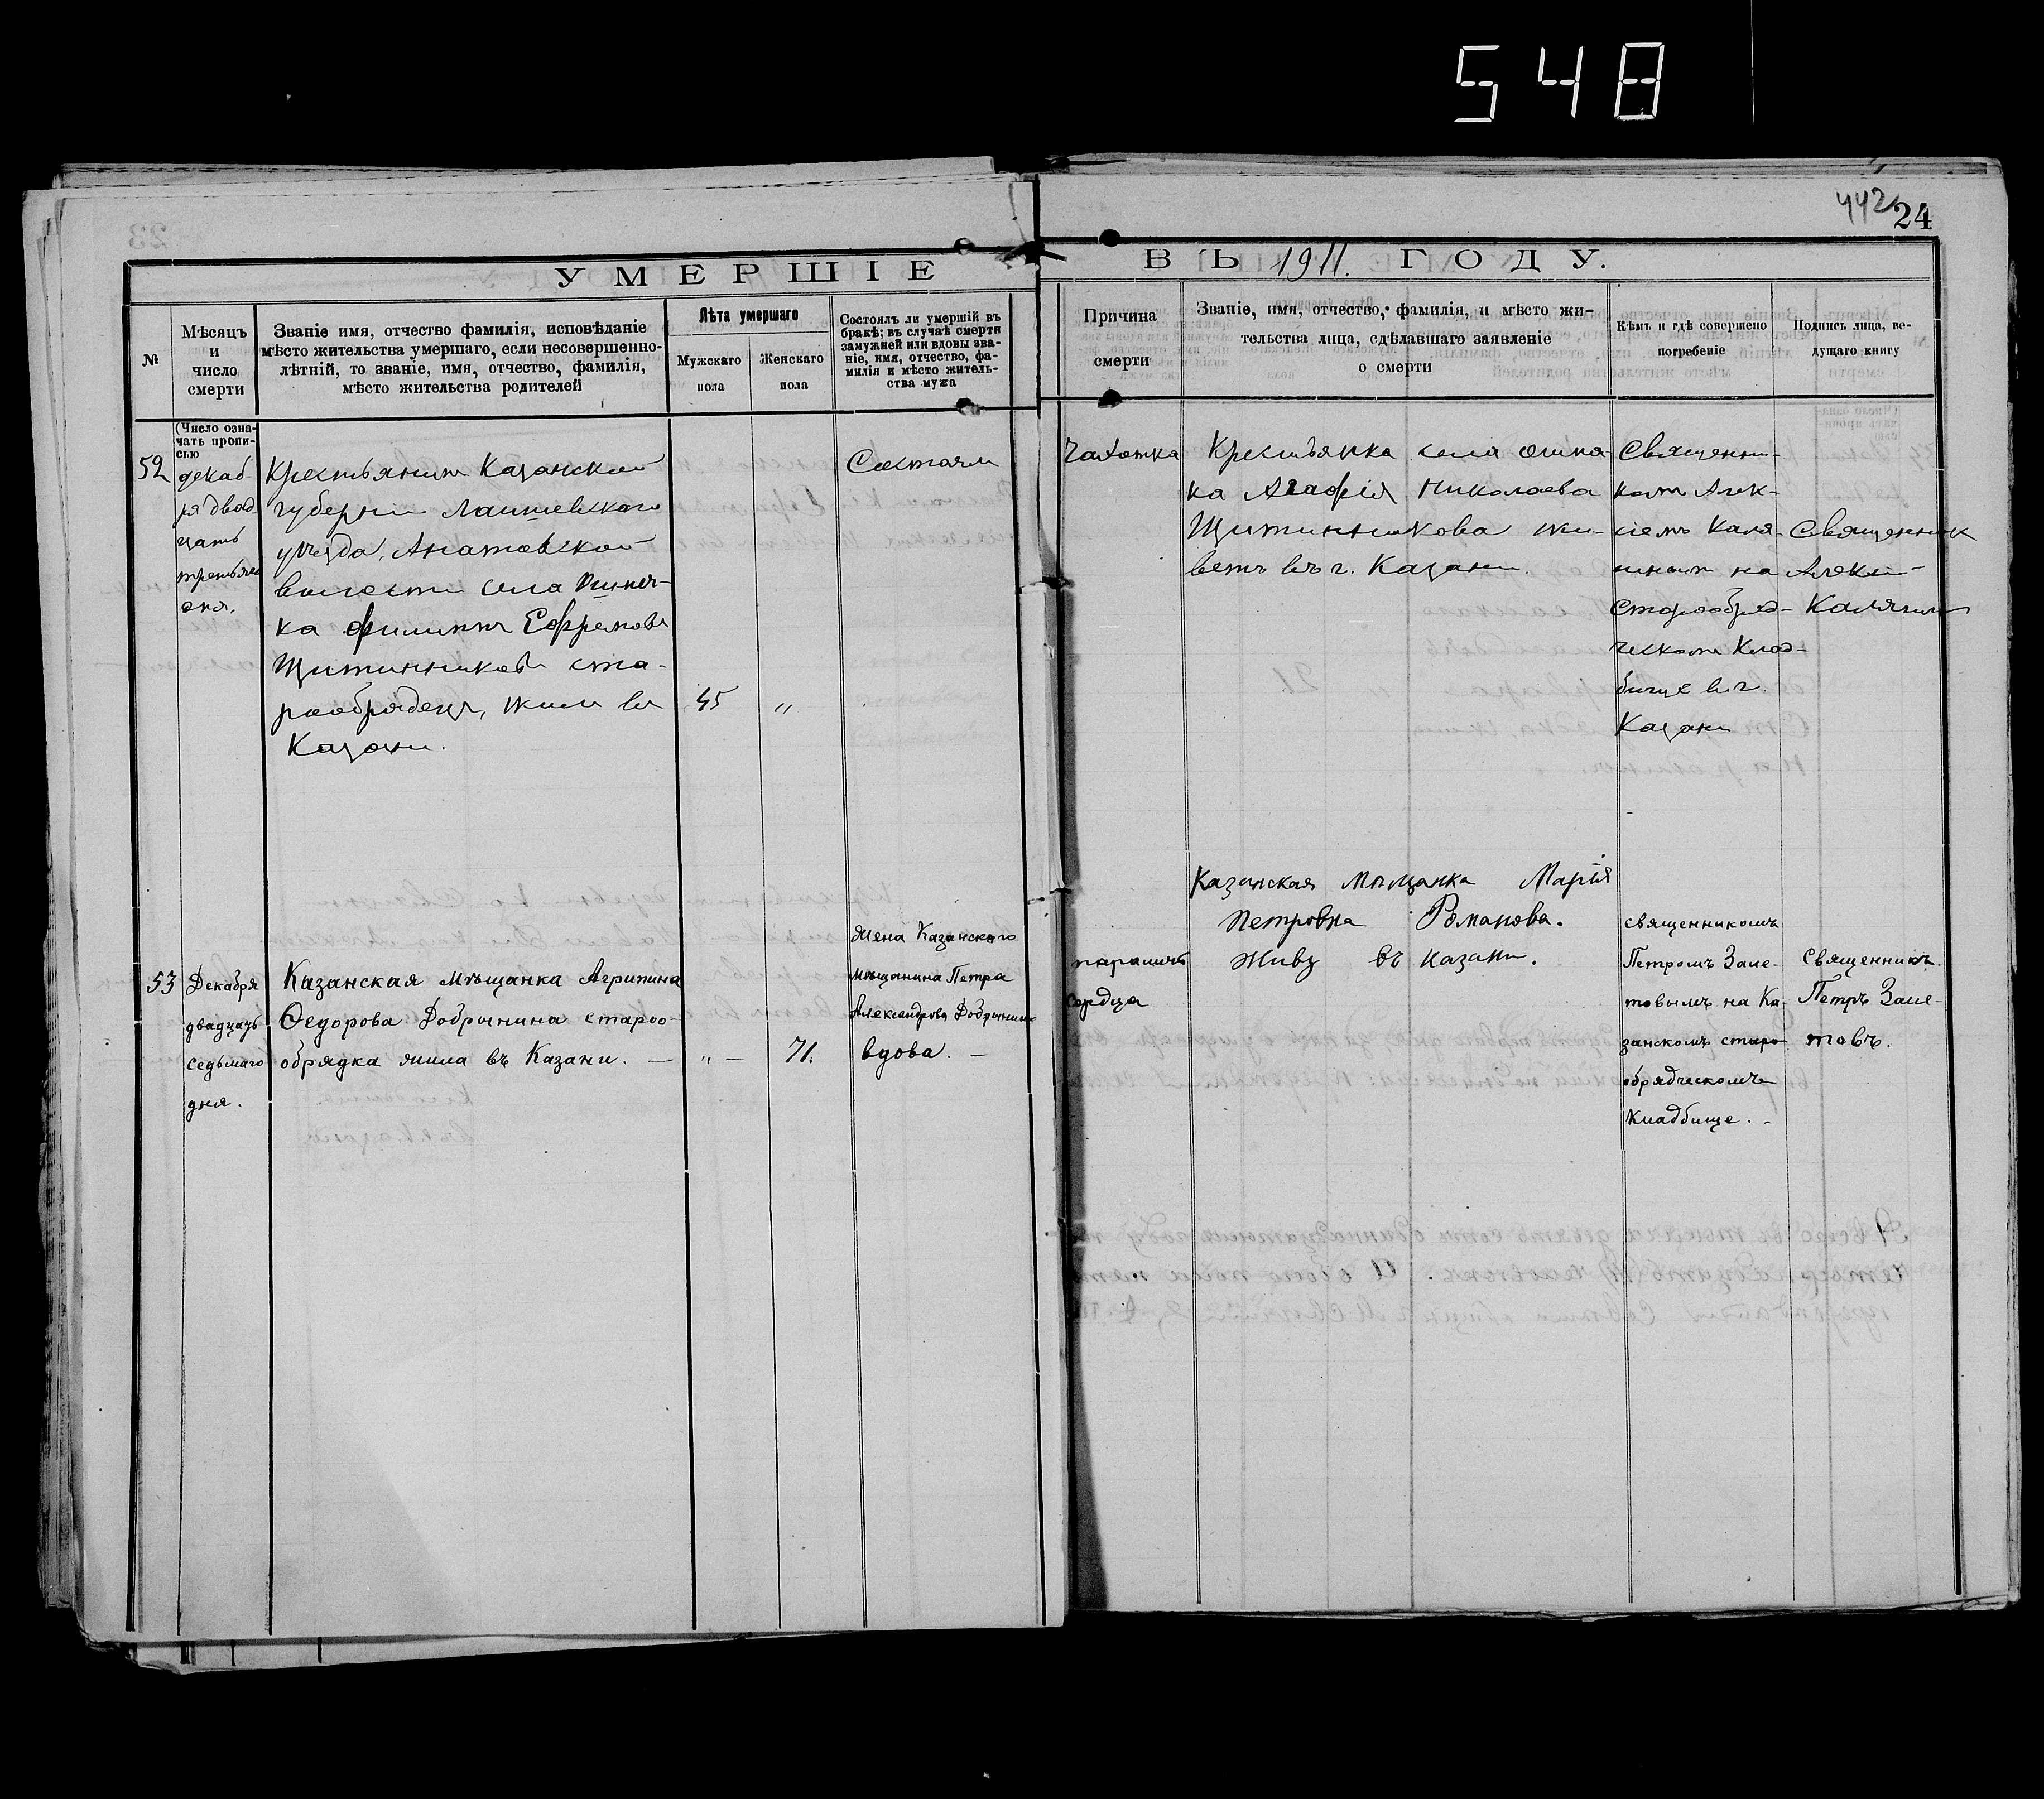 548
442
24
УМЕРШІЕ
ВЪ 1911. ГОДУ.
№
Мѣсяцъ
и
число
смерти
Званіе имя, отчество фамилія, исповѣданіе
мѣсто жительства умершаго, если несовершенно-
лѣтній, то званіе, имя, отчество, фамилія,
мѣсто жительства родителей
Лѣта умершаго
Мужскаго
пола
Женскаго
пола
Состоялъ ли умершій въ
бракѣ; въ случаѣ смерти
замужней или вдовы зва-
ніе, имя, отчество, фа-
милія и мѣсто житель-
ства мужа
Причина
смерти
Званіе, имя, отчество, фамилія, и мѣсто жи-
тельства лица, сдѣлавшаго заявленіе
о смерти
Кѣмъ и гдѣ совершено
погребеніе
Подпись лица, ве-
дущаго книгу
(Число озна-
чать пропи-
сью
52
декаб
ря двад
цать
третьяго
дня.
Крестьянинъ Казанской
губерніи Лаишевскаго
уѣзда, Анатовской
волости села
ка Филиппъ Ефремовъ
Щитинниковъ ста-
рообрядецъ, жилъ въ
Казани.
45
"
Состоялъ
Чахотка
Крестьянка села
ка Агафія Николаева
Щитинникова жи-
ветъ въ г. Казани.
Священни-
комъ Алек-
сіемъ Каля-
гинымъ на
старообряд-
ческомъ клад-
бище въ г.
Казани
Священник
Алексій
Калягинъ
53
Декабря
двадцать
седьмаго
дня.
Казанская мѣщанка Агрипина
Ѳедорова Добрынина староо-
обрядка жила въ Казани. —
" —
71.
Жена Казанскаго
мѣщанина Петра
Александрова Добрынина
вдова. —
параличъ
сердца
Казанская мѣщанка Марія
Петровна Романова.
Живу въ казани.
священникомъ
Петромъ Зале-
товымъ на Ка-
занскомъ старо
обрядческомъ
кладбище. -
Священникъ
Петръ Зале-
товъ.